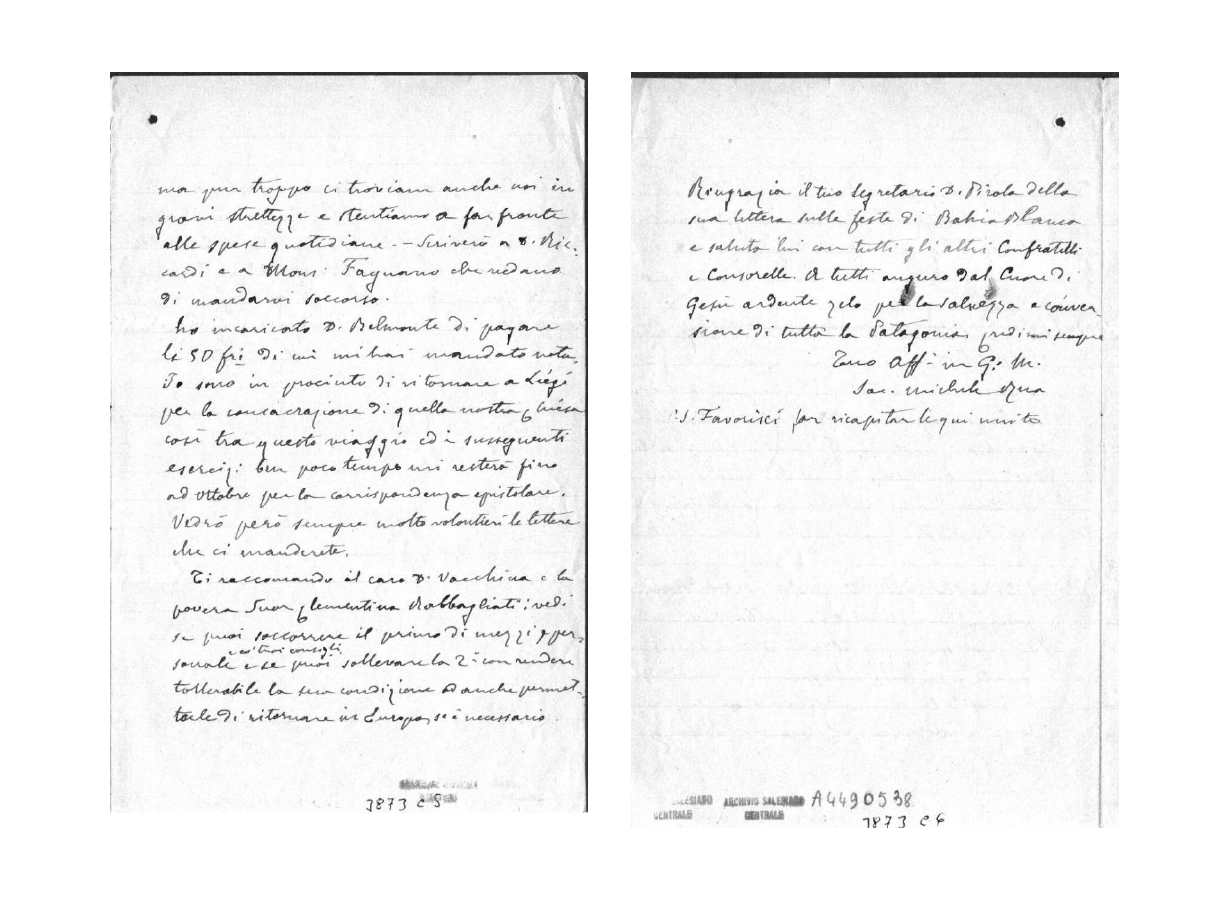 ma pur troppo ci troviam anche noi in
gravi strettezze e stentiamo a far fronte
alle spese quotidiane. - Scriverò a D. Ric-
cardi e a Mons. Fagnano che vedano
di mandarvi soccorso.
ho incaricato D. Belmonte di pagare
li 50 fri di cui mi hai mandato nota.
Io sono in procinto di ritornare a Liegi
per la consacrazione di quella nostra Chiesa
così tra questo viaggio ed i susseguenti
esercizi ben poco tempo mi resterà fino
ad ottobre per la corrispondenza epistolare.
Vedrò però sempre molto volontieri le lettere
che ci manderete.
Ti raccomando il caro D. Vacchina e la
povera Suor Clementina Rabbagliati: vedi
se puoi soccorrere il primo di mezzi e per-
e co' tuoi consigli
sonale e se puoi sollevare la 2ª con rendere
tollerabile la sua condizione od anche permet-
terle di ritornare in Europa, se è necessario.
3873 C 5
Ringrazia il tuo segretario D. Pirola della
sua lettera sulle feste di Bahia Blanca
e saluta lui con tutti gli altri Confratelli
e Consorelle. A tutti auguro dal Cuore di
Gesù ardente zelo per la salvezza e conver
sione di tutta la Patagonia credimi sempre
Tuo Aff. in G. M.
Sac. Michele Rua
P.S. Favorisci far ricapitar le qui unite
SALESIANO ARCHIVIO SALESIANO A4490538
CENTRALE CENTRALE
3873 C 6